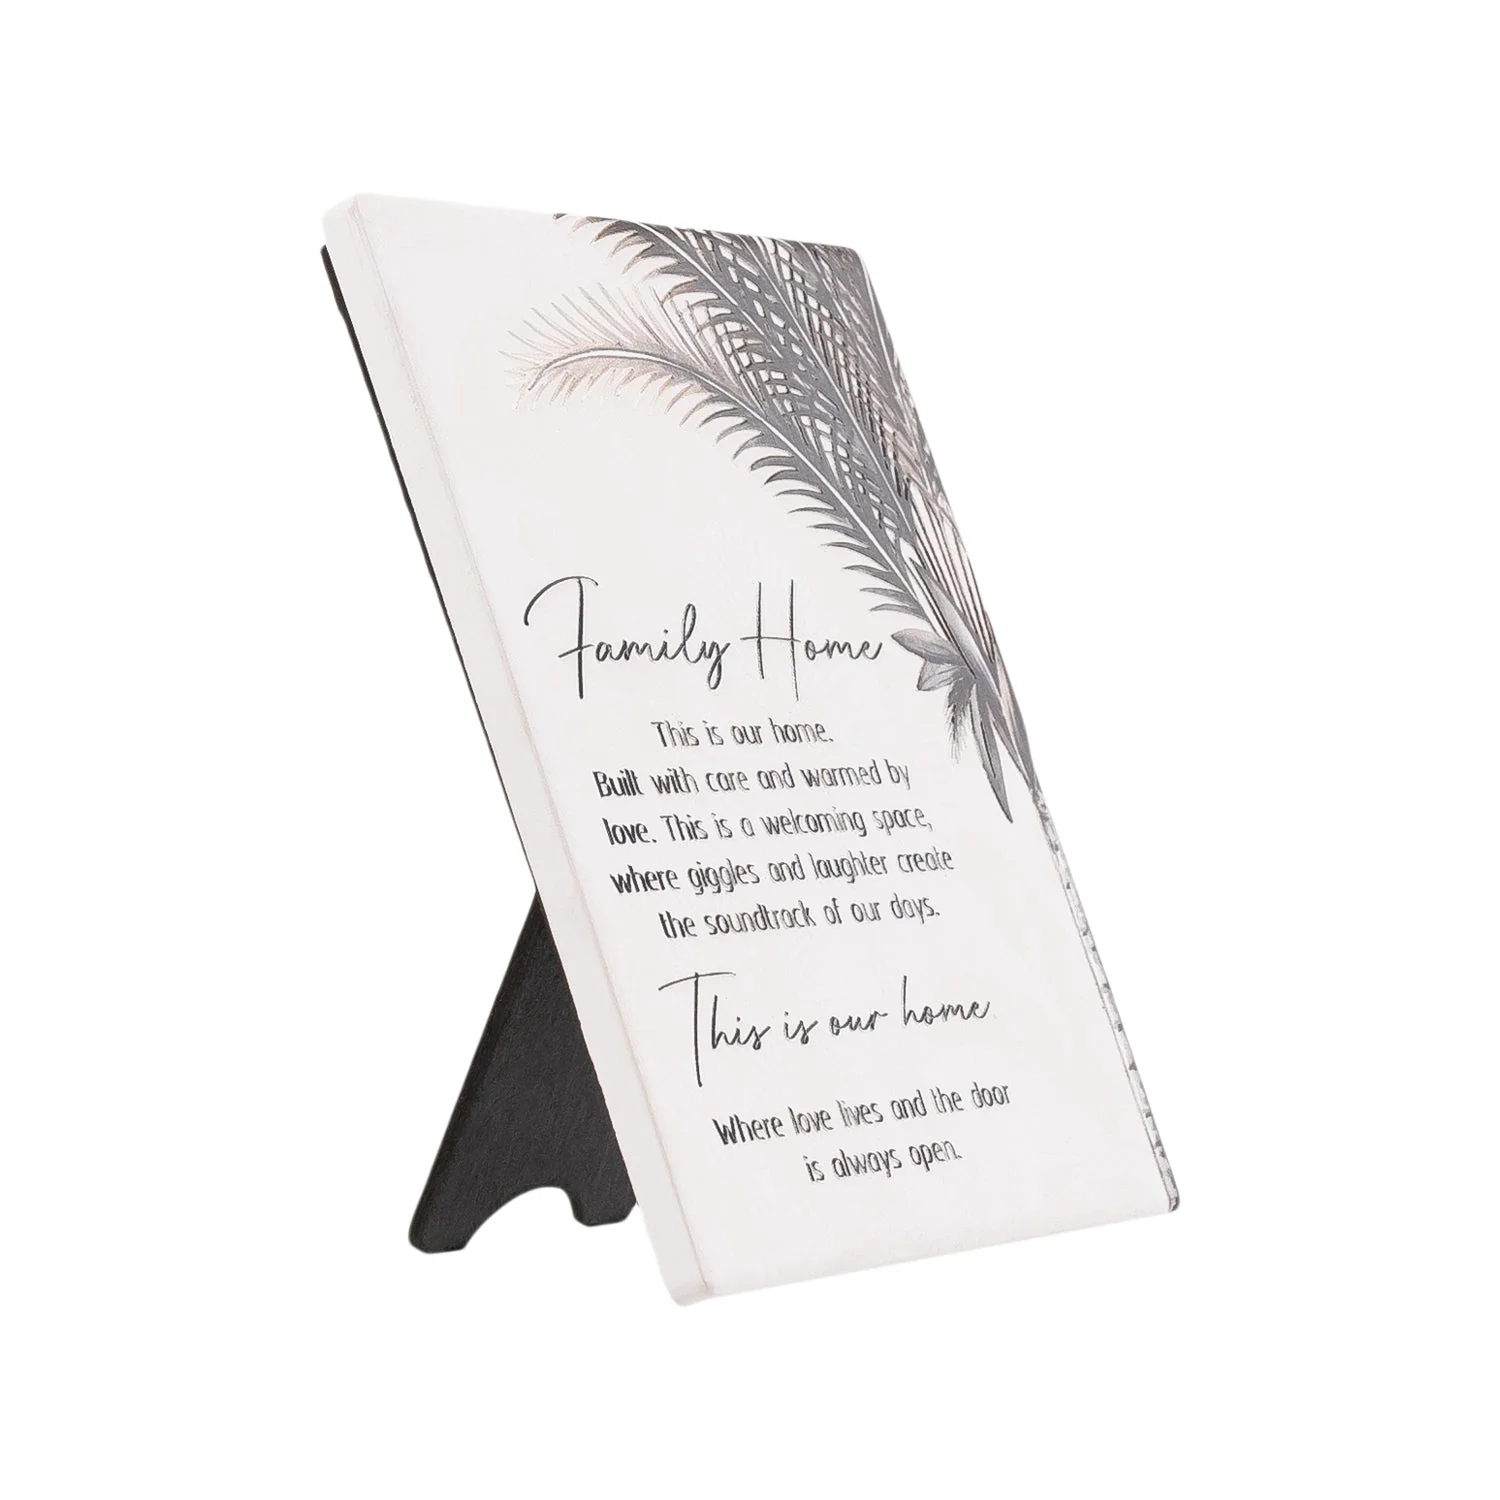 Family Home
This is our home.
Built with care and warmed by
love. This is a welcoming space,
where giggles and laughter create
the soundtrack of our days.
This is our home.
Where love lives and the door
is always open.